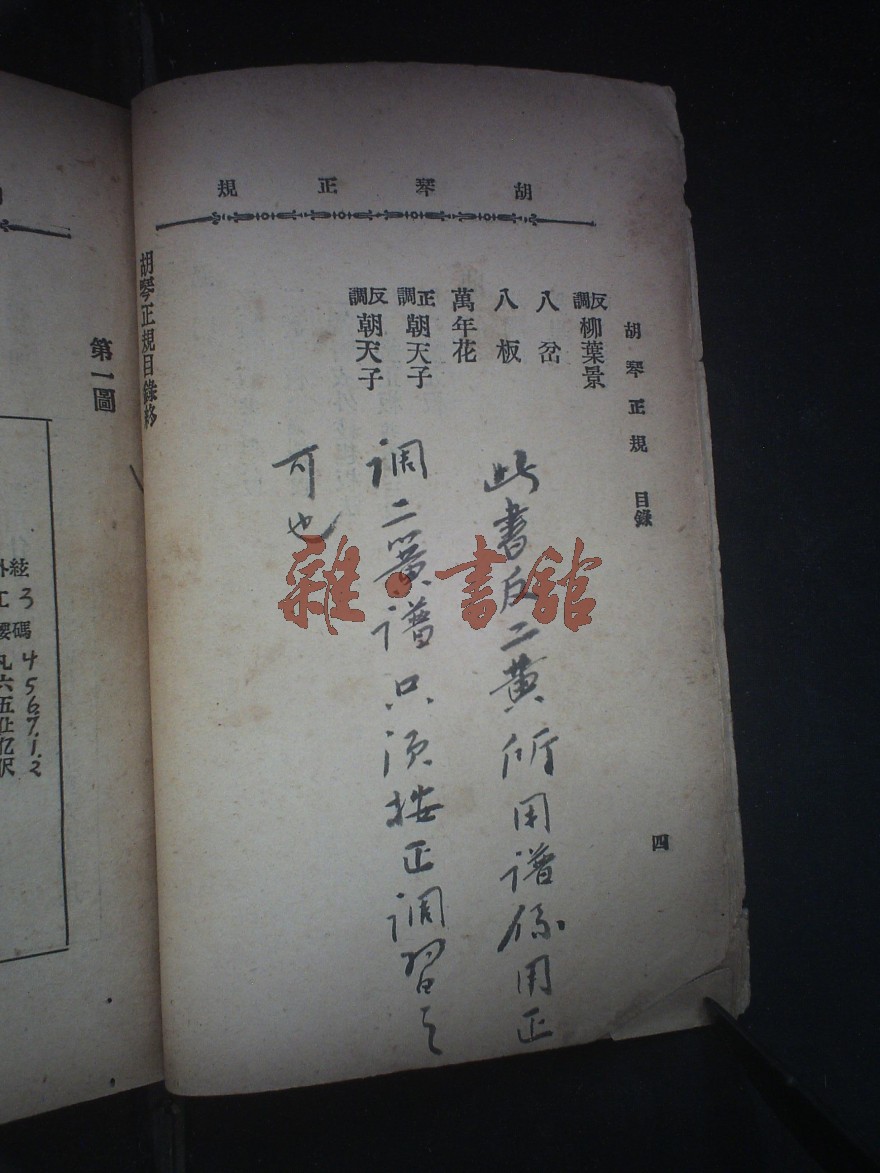 胡琴正規
胡琴正規 目錄
四
反調 柳葉景
八岔
八板
萬年花
正調 朝天子
反調 朝天子
此書反二黄所用谱係用正
调二簧谱只须按正调習之
可也
胡琴正規目錄終
第一圖
外絃
工 3
凡 4
六 5
五 6
仩 7.
亿 1.
伬 2
雜·書舘